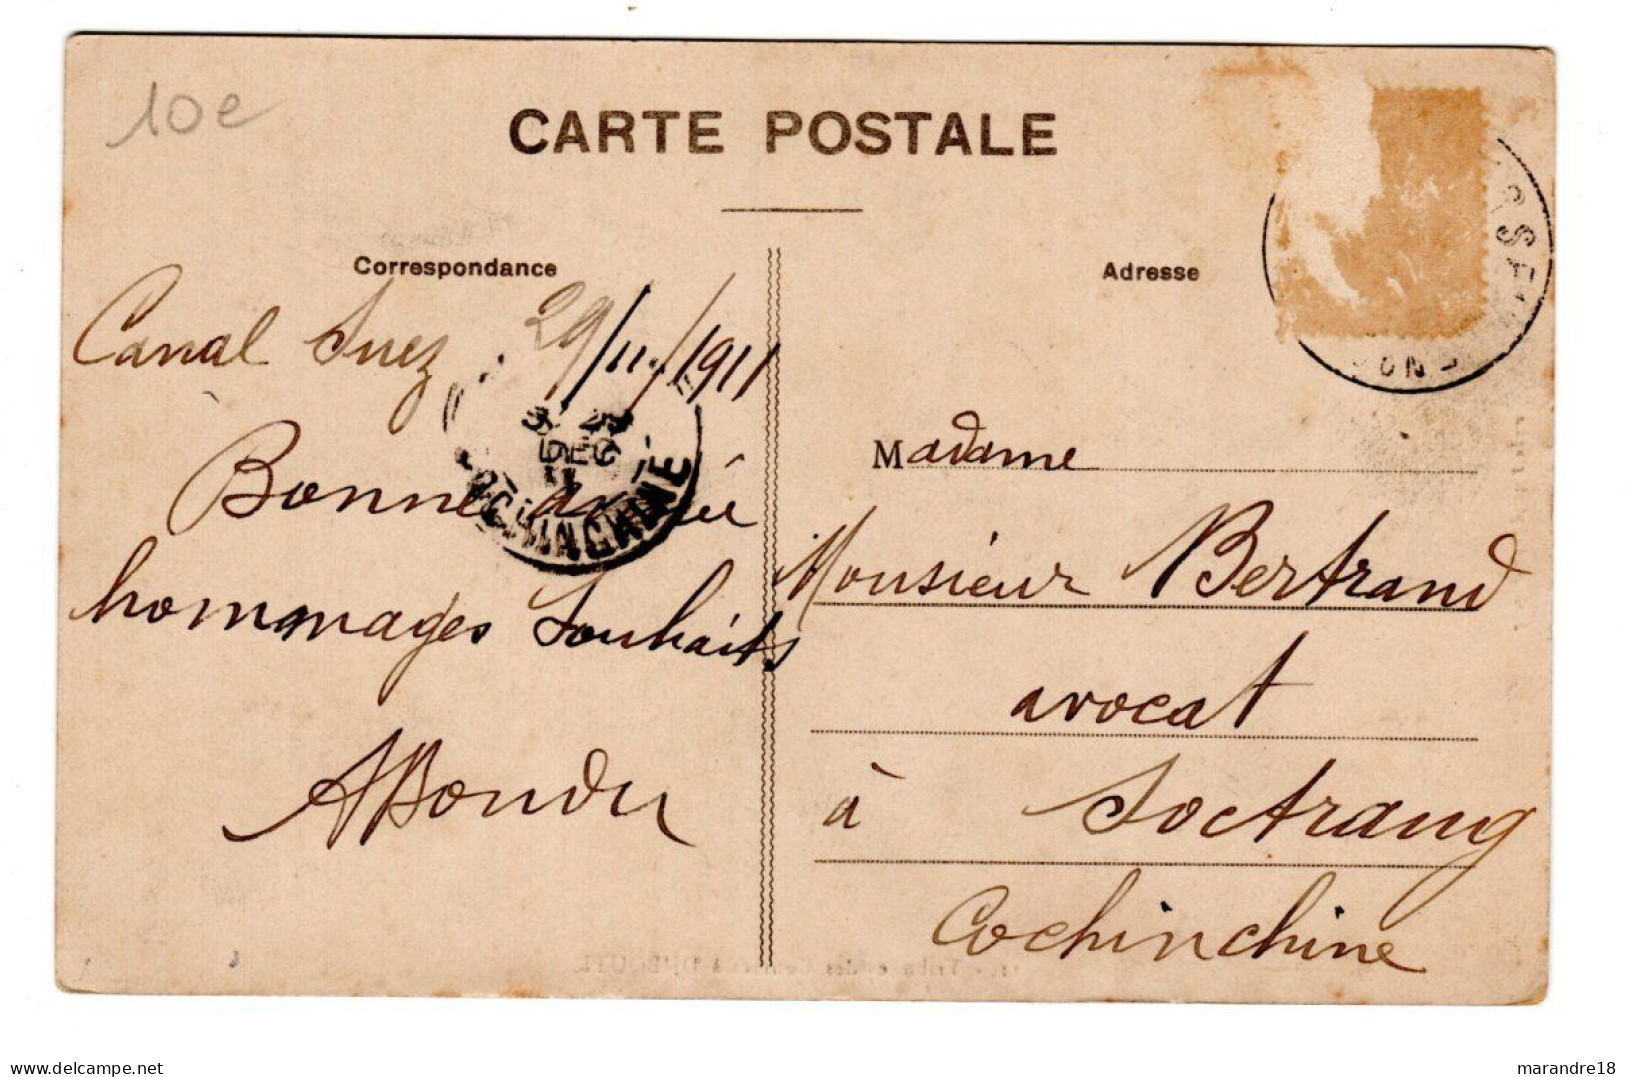 10e
CARTE POSTALE
Correspondance
Adresse
Canal Suez 29/11/1911
DEC
11
COCHINCHINE
Bonne année
hommages Souhaits
ABondu
Madame
Monsieur Bertrand
avocat
à Soctrang
Cochinchine
marandre18